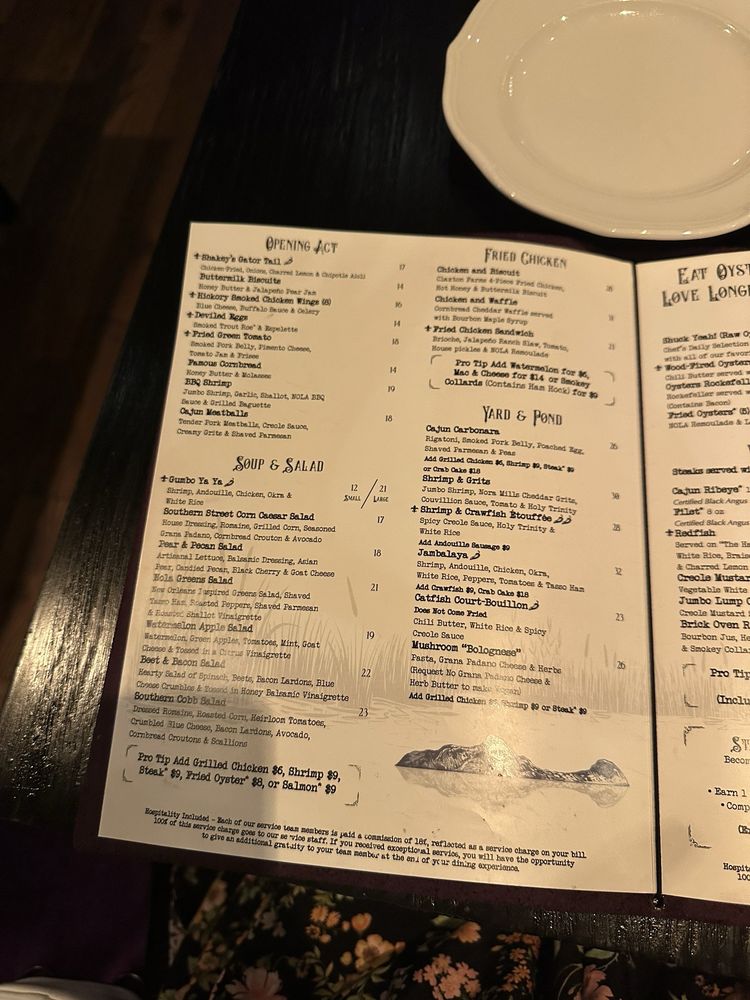 Opening Act
Shakey's Gator Tail 17
Chicken-Fried, Onions, Charred Lemon & Chipotle Aioli
Buttermilk Biscuits 14
Honey Butter & Jalapeño Pear Jam
Hickory Smoked Chicken Wings (8) 16
Blue Cheese, Buffalo Sauce & Celery
Deviled Eggs 14
Smoked Trout Roe* & Espelette
Fried Green Tomato 18
Smoked Pork Belly, Pimento Cheese,
Tomato Jam & Frisee
Famous Cornbread 14
Honey Butter & Molasses
BBQ Shrimp 19
Jumbo Shrimp, Garlic, Shallot, NOLA BBQ
Sauce & Grilled Baguette
Cajun Meatballs 18
Tender Pork Meatballs, Creole Sauce,
Creamy Grits & Shaved Parmesan
Soup & Salad
Gumbo Ya Ya 12 / 21
Small / Large
Shrimp, Andouille, Chicken, Okra &
White Rice
Southern Street Corn Caesar Salad 17
House Dressing, Romaine, Grilled Corn, Seasoned
Grana Padano, Cornbread Crouton & Avocado
Pear & Pecan Salad 18
Artisanal Lettuce, Balsamic Dressing, Asian
Pear, Candied Pecan, Black Cherry & Goat Cheese
Nola Greens Salad 21
New Orleans Inspired Greens Salad, Shaved
Tasso Ham, Roasted Peppers, Shaved Parmesan
& Roasted Shallot Vinaigrette
Watermelon Apple Salad 19
Watermelon, Green Apples, Tomatoes, Mint, Goat
Cheese & Tossed in a Citrus Vinaigrette
Beet & Bacon Salad 22
Hearty Salad of Spinach, Beets, Bacon Lardons, Blue
Cheese Crumbles & Tossed in Honey Balsamic Vinaigrette
Southern Cobb Salad 23
Dressed Romaine, Roasted Corn, Heirloom Tomatoes,
Crumbled Blue Cheese, Bacon Lardons, Avocado,
Cornbread Croutons & Scallions
Pro Tip Add Grilled Chicken $6, Shrimp $9,
Steak* $9, Fried Oyster* $8, or Salmon* $9
Fried Chicken
Chicken and Biscuit
Claxton Farms 4-Piece Fried Chicken,
Hot Honey & Buttermilk Biscuit
Chicken and Waffle
Cornbread Cheddar Waffle served
with Bourbon Maple Syrup
Fried Chicken Sandwich 21
Brioche, Jalapeño Ranch Slaw, Tomato,
House pickles & NOLA Remoulade
Pro Tip Add Watermelon for $6,
Mac & Cheese for $14 or Smokey
Collards (Contains Ham Hock) for $9
Yard & Pond
Cajun Carbonara 26
Rigatoni, Smoked Pork Belly, Poached Egg,
Shaved Parmesan & Peas
Add Grilled Chicken $6, Shrimp $9, Steak* $9
or Crab Cake $18
Shrimp & Grits 30
Jumbo Shrimp, Nora Mills Cheddar Grits,
Couvillion Sauce, Tomato & Holy Trinity
Shrimp & Crawfish Étouffée 28
Spicy Creole Sauce, Holy Trinity &
White Rice
Add Andouille Sausage $9
Jambalaya 32
Shrimp, Andouille, Chicken, Okra,
White Rice, Peppers, Tomatoes & Tasso Ham
Add Crawfish $9, Crab Cake $18
Catfish Court-Bouillon 23
Does Not Come Fried
Chili Butter, White Rice & Spicy
Creole Sauce
Mushroom "Bolognese" 26
Pasta, Grana Padano Cheese & Herbs
(Request No Grana Padano Cheese &
Herb Butter to make Vegan)
Add Grilled Chicken $6, Shrimp $9 or Steak* $9
Hospitality Included - Each of our service team members is paid a commission of 18%, reflected as a service charge on your bill.
100% of this service charge goes to our service staff. If you received exceptional service, you will have the opportunity
to give an additional gratuity to your team member at the end of your dining experience.
Eat Oyst
Love Long
Shuck Yeah! (Raw O
Chef's Daily Selection
with all of our favor
Wood-Fired Oyster
Chili Butter served w
Oysters Rockefell
Rockefeller served w
(Contains Bacon)
Fried Oysters* (5)
NOLA Remoulade & L
Steaks served wi
Cajun Ribeye* 1
Certified Black Angus
Filet* 8 oz
Certified Black Angus
Redfish
Served on "The Ha
White Rice, Brais
& Charred Lemon
Creole Mustar
Vegetable White
Jumbo Lump C
Creole Mustard
Brick Oven R
Bourbon Jus, He
& Smokey Colla
Pro Tip
(Inclu
St
Becom
• Earn 1
• Comp
Hospita
100